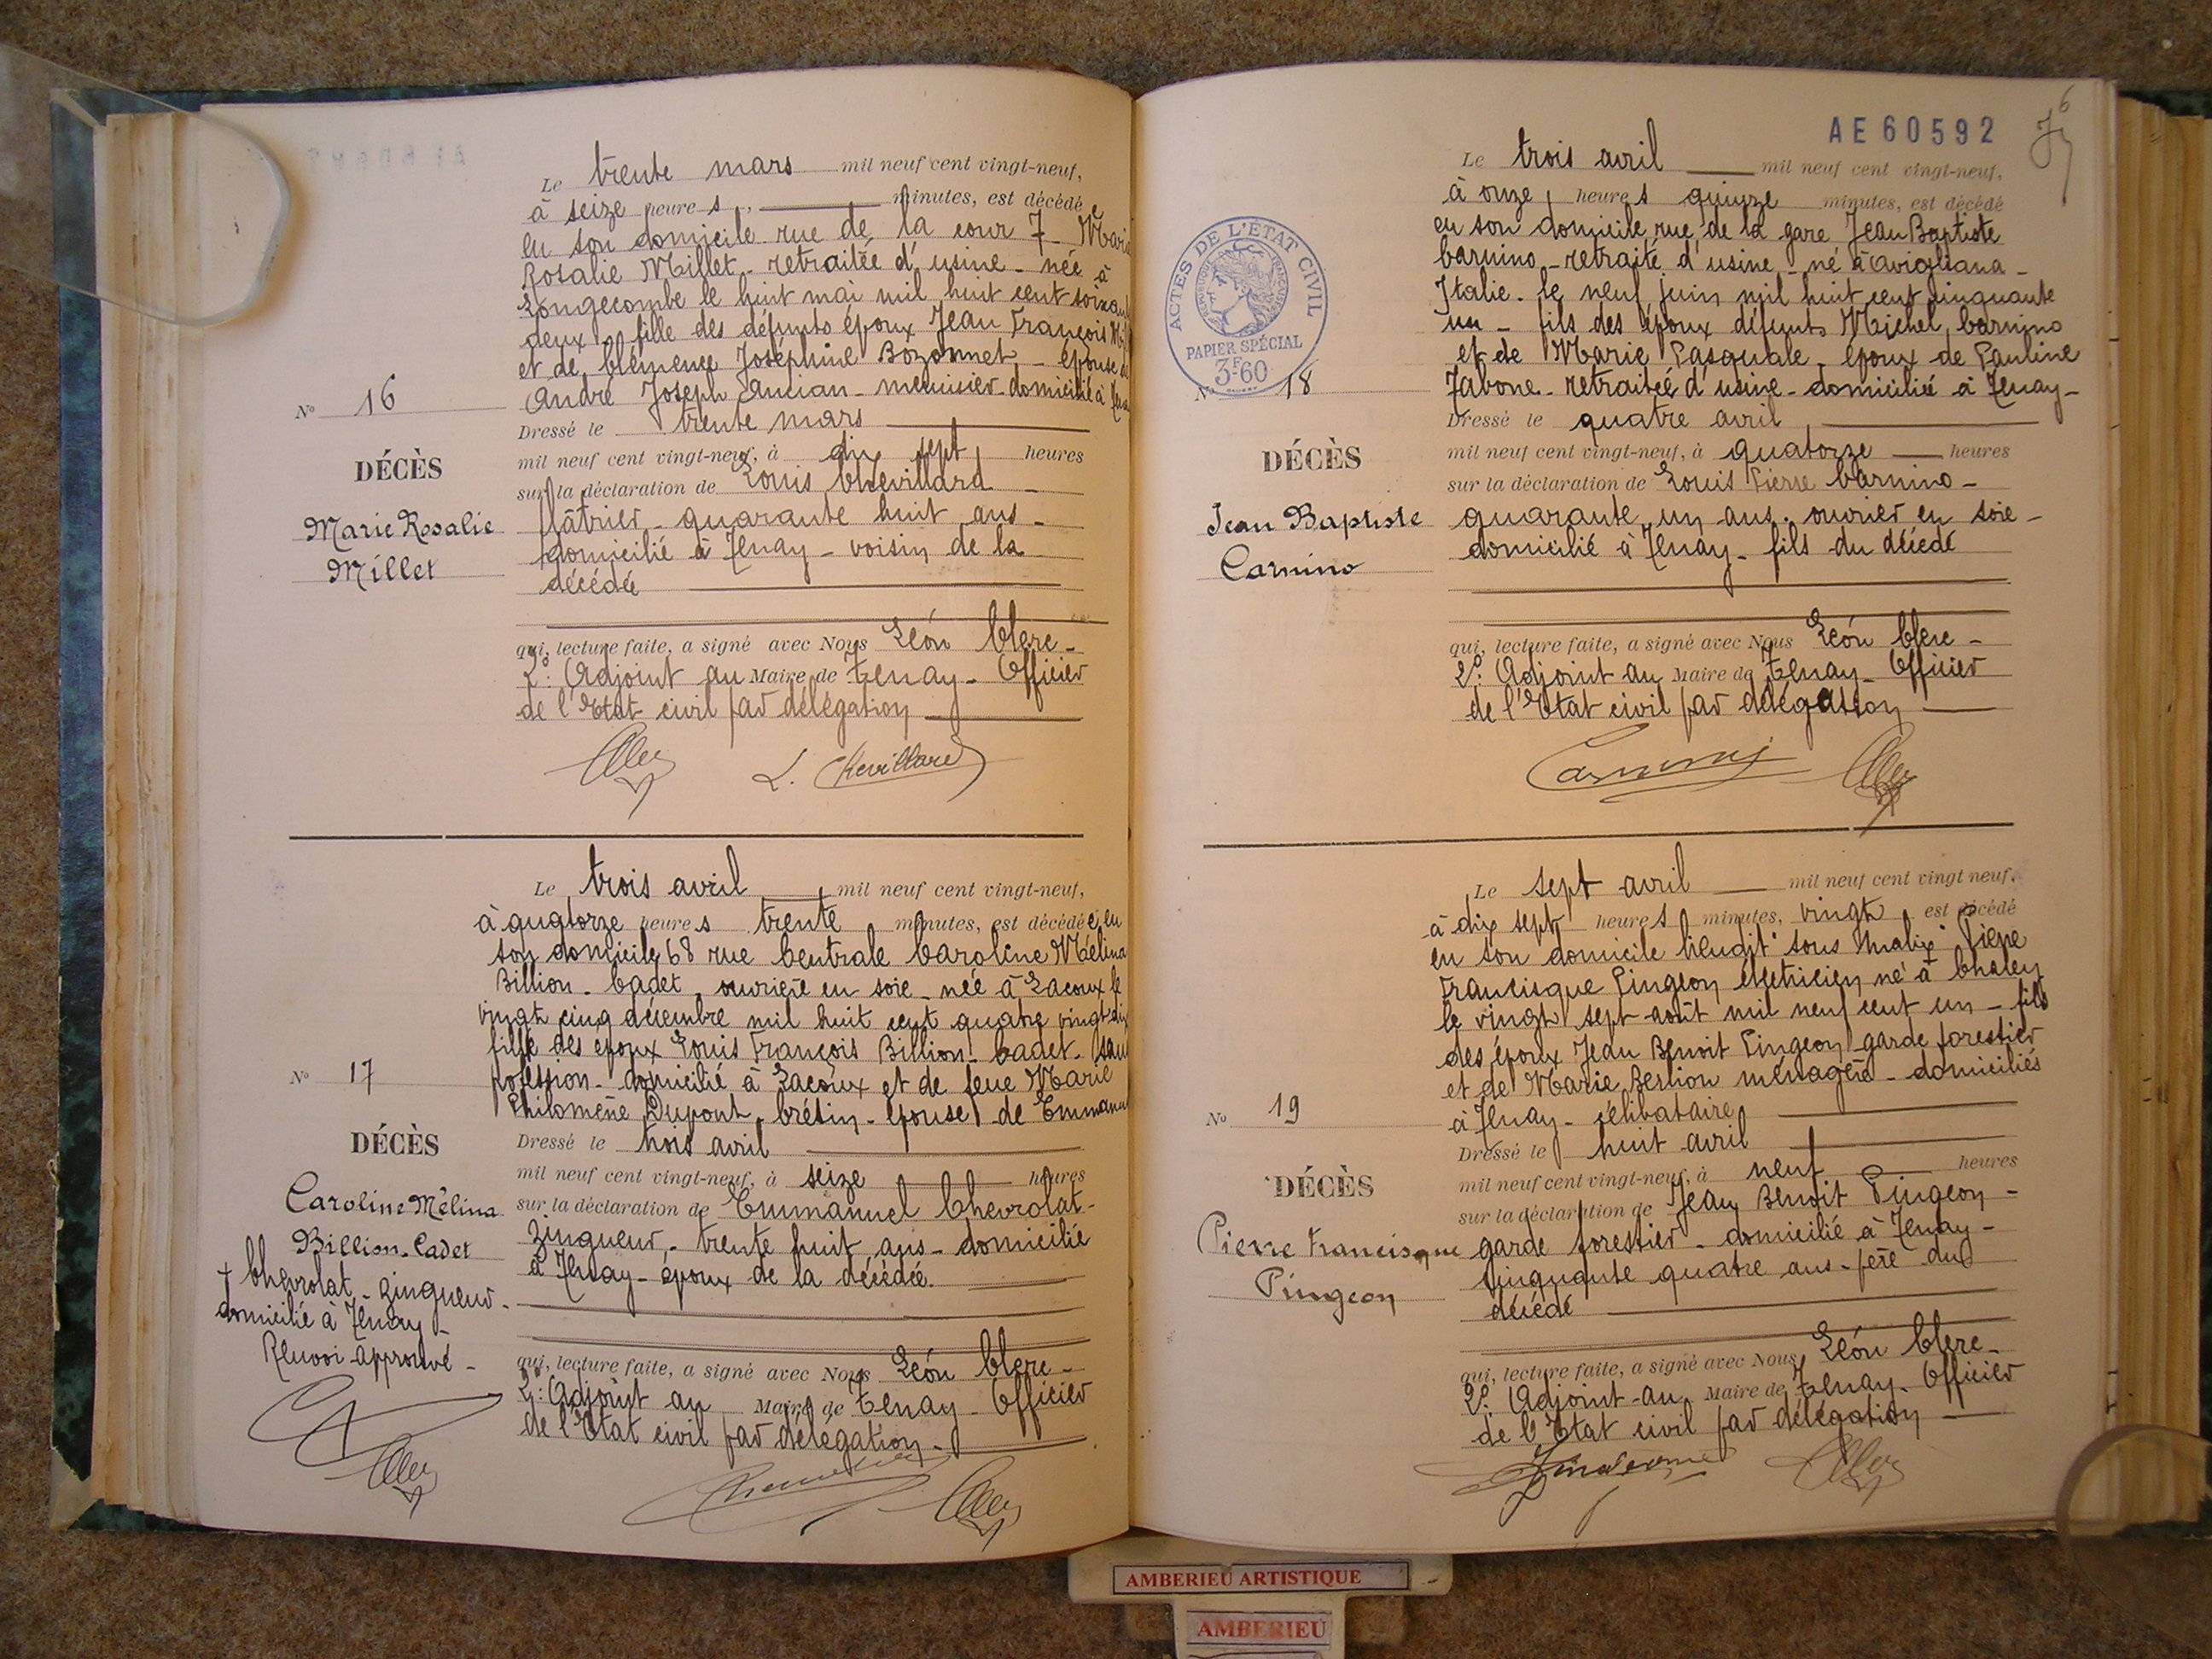 Le trente mars mil neuf cent vingt-neuf,
à seize heures, minutes, est décédée
en son domicile rue de la cour 7 Marie
Rosalie Millet - retraitée d'usine - née à
Longecombe le huit mai mil huit cent soixante
deux - fille des défunts époux Jean François
et de Clémence Joséphine Bozonnet - épouse de
André Joseph Lancian - menuisier - domicilié à
N° 16
Dressé le trente mars
mil neuf cent vingt-neuf, à dix sept heures
DÉCÈS
sur la déclaration de Louis Chevillard
Marie Rosalie
Millet
plâtrier - quarante huit ans -
domicilié à Tenay - voisin de la
décédée
qui, lecture faite, a signé avec Nous Léon Clerc -
2e Adjoint au Maire de Tenay - Officier
de l'Etat civil par délégation
L. Chevillard
Le trois avril mil neuf cent vingt-neuf,
à quatorze heures trente minutes, est décédée en
son domicile 68 rue Centrale Caroline Mélina
Billion - Cadet - ouvrière en soie - née à Lacoux le
vingt cinq décembre mil huit cent quatre vingt dix
fille des époux Louis François Billion - Cadet - (sans
profession - domicilié à Lacoux et de feue Marie
Philomène Dupont - Crétin - épouse de Emmanuel
N° 17
DÉCÈS
Caroline Mélina
Billion-Cadet
+ Chevrolat - zingueur -
domicilié à Tenay -
Renvoi approuvé -
Dressé le trois avril
mil neuf cent vingt-neuf, à seize heures
sur la déclaration de Emmanuel Chevrolat -
zingueur - trente huit ans - domicilié
à Tenay - époux de la décédée.
qui, lecture faite, a signé avec Nous Léon Clerc -
2e Adjoint au Maire de Tenay - Officier
de l'Etat civil par délégation -
AE 60592
6
Le trois avril mil neuf cent vingt-neuf,
à onze heures quinze minutes, est décédé
en son domicile rue de la gare Jean Baptiste
Carnino - retraité d'usine - né à Avigliana -
Italie - le neuf juin mil huit cent cinquante
un - fils des époux défunts Michel Carnino
et de Marie Pasquale - époux de Pauline
Jabone - retraitée d'usine - domiciliée à Tenay -
ACTES DE L'ÉTAT CIVIL
PAPIER SPÉCIAL
3F.60
N° 18
DÉCÈS
Jean Baptiste
Carnino
Dressé le quatre avril
mil neuf cent vingt-neuf, à quatorze heures
sur la déclaration de Louis Pierre Carnino -
quarante un ans - ouvrier en soie -
domicilié à Tenay - fils du décédé
qui, lecture faite, a signé avec Nous Léon Clerc -
2e Adjoint au Maire de Tenay - Officier
de l'Etat civil par délégation
Le sept avril mil neuf cent vingt neuf,
à dix sept heures minutes, vingt est décédé
en son domicile lieudit "sous Malix" Pierre
Francisque Pingeon électricien né à Chaley
le vingt sept août mil neuf cent un - fils
des époux Jean Benoit Pingeon garde forestier
et de Marie Berlion ménagère - domiciliés
à Tenay - célibataire
N° 19
DÉCÈS
Pierre Francisque
Pingeon
Dressé le huit avril
mil neuf cent vingt-neuf, à neuf heures
sur la déclaration de Jean Benoit Pingeon -
garde forestier - domicilié à Tenay -
cinquante quatre ans - père du
décédé
qui, lecture faite, a signé avec Nous Léon Clerc -
2e Adjoint au Maire de Tenay - Officier
de l'Etat civil par délégation
AMBERIEU ARTISTIQUE
AMBERIEU